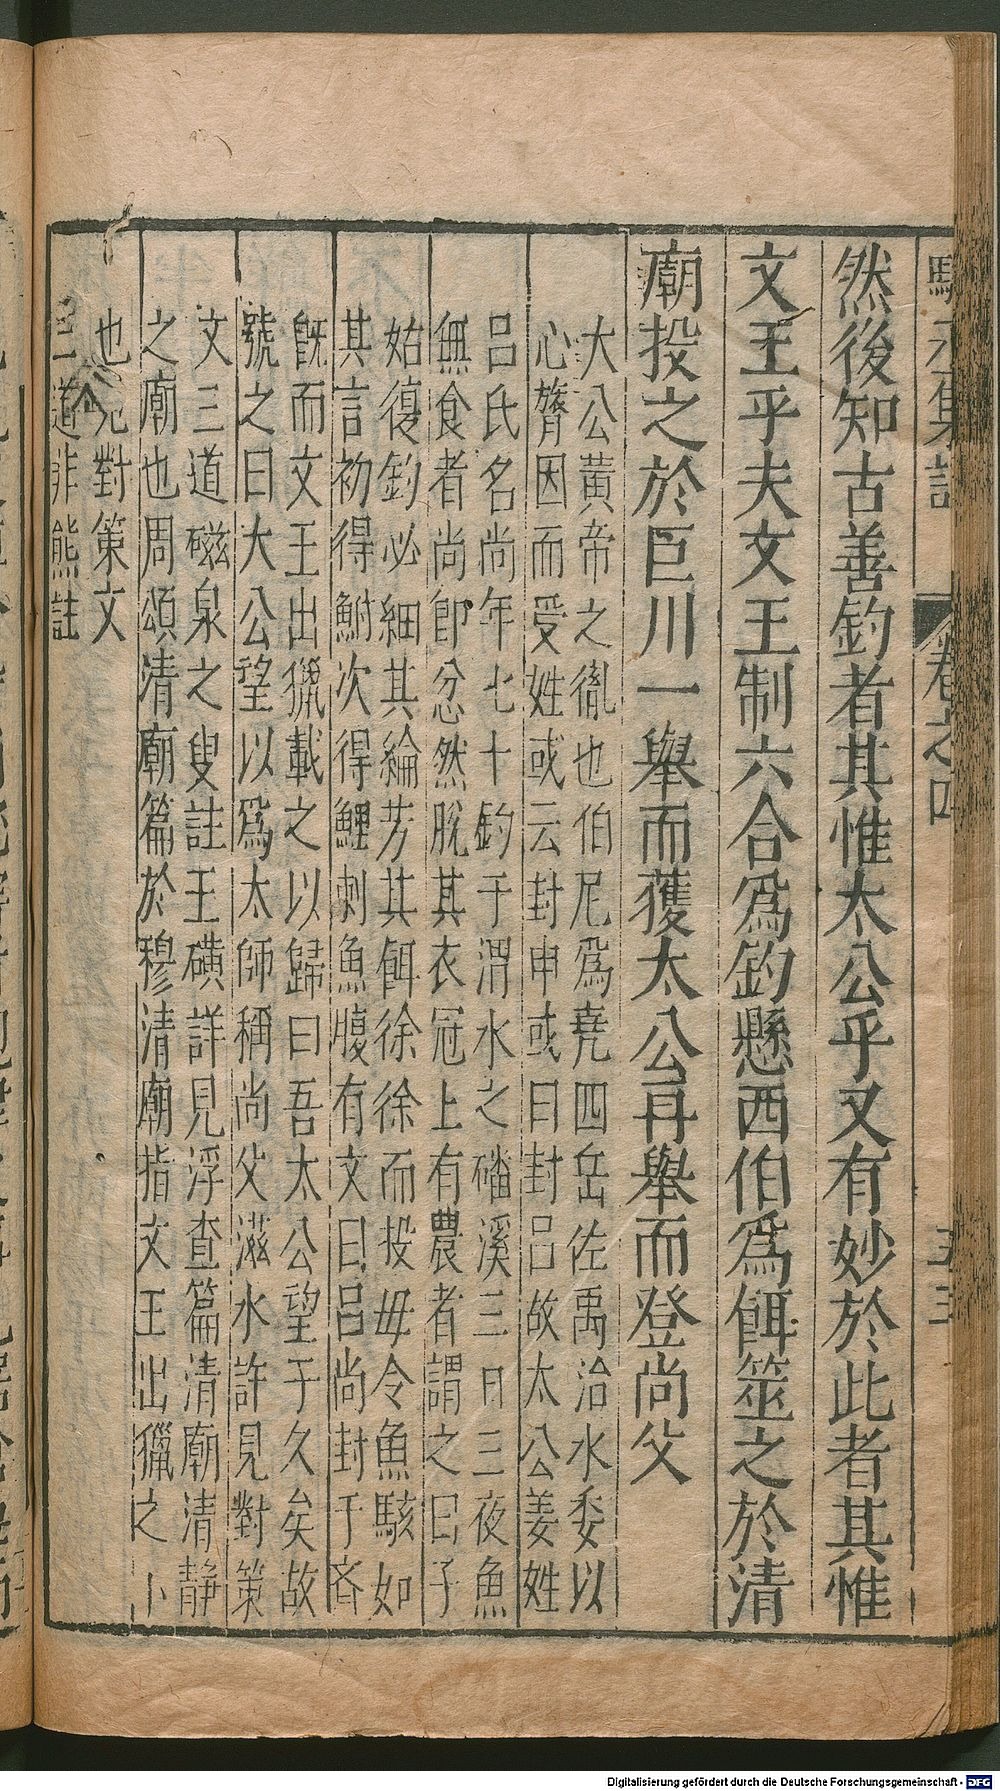 然後知古善釣者其惟太公乎又有妙於此者其惟
文王乎夫文王制六合爲釣懸西伯爲餌筮之於清
廟投之於巨川一舉而獲太公再舉而登尚父
大公黃帝之胤也伯尼爲堯四岳佐禹治水委以
心膂因而受姓或云封申或曰封呂故太公姜姓
呂氏名尚年七十釣于渭水之磻溪三日三夜魚
無食者尚卽忿然脫其衣冠上有農者謂之曰子
始復釣必細其綸芳其餌徐徐而投毋令魚駭如
其言初得鮒次得鯉刺魚腹有文曰呂尚封于斉
旣而文王出獵載之以歸曰吾太公望于久矣故
號之曰大公望以爲太師稱尚父滋水許見對策
文三道磁泉之叟註王璜詳見浮查篇清廟清靜
之廟也周頌清廟篇於穆清廟指文王出獵之卜
也 見對策文
三道非熊註
卷之四
Digitalisierung gefördert durch die Deutsche Forschungsgemeinschaft - DFG